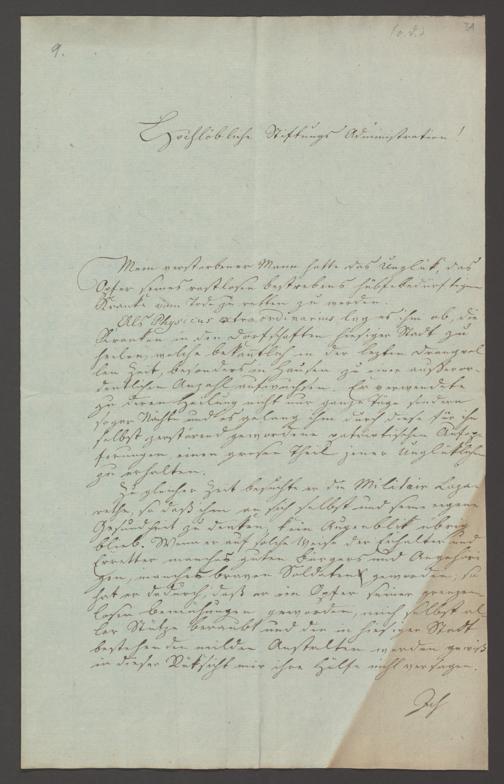 9.
31
Hochlöbliche Stiftungs Administration!
Mein verstorbener Mann hatte das Unglük, das
Opfer seines rastlosen bestrebens hülfsbedürftigen
Kranke vom Tode zu retten zu werden.
Als Physicus extraordinarius lag es ihm ob, die
Kranken in den Dorfschaften hiesiger Stadt zu
heilen, welche bekantlich in der lezten Drangvol
len Zeit, besonders in Hausen zu einer außeror-
dentlichen Anzahl anwuchsen. Er verwendete
zu deren Heilung nicht nur ganze Tage sondern
sogar Nächte und es gelang ihm durch diese für ihn
selbst zerstörend gewordene patriotischen Aufop-
ferungen einen grosen Theil jener Unglüklichen
zu erhalten.
Zu gleicher Zeit besuchte er die Militair Laza-
rethe, so daß ihm an sich selbst und seine eigene
Gesundheit zu denken, kein Augenblik übrig
blieb. Wenn er auf solche Weise der Erhalter und
Erretter manches guten Bürgers und Angehöri
gen, manches braven Soldaten geworden, so
hat er dadurch, daß er ein Opfer seiner grenzen
losen bemühungen geworden, mich selbst al
ler Stütze beraubt und die in hiesiger Stadt
bestehenden milden Anstalten werden gewiß
in dieser Rüksicht mir ihre Hülfe nicht versagen.
Ich